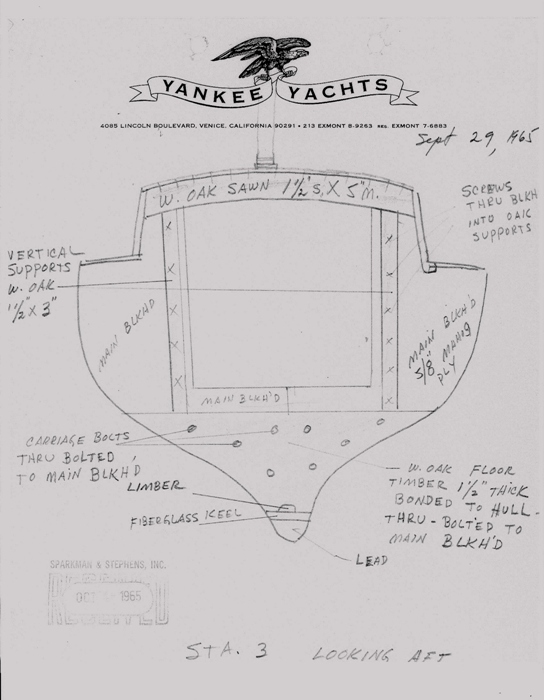 YANKEE YACHTS
4085 LINCOLN BOULEVARD, VENICE, CALIFORNIA 90291 • 213 EXMONT 8-9263 RES. EXMONT 7-6883
Sept 29, 1965
W. OAK SAWN 1 1/2" S, X 5" M.
SCREWS
THRU BLKH
INTO OAK
SUPPORTS
VERTICAL
SUPPORTS
W. OAK
1 1/2" X 3"
MAIN BLKH'D
MAIN BLKH'D
5/8" MAHOG
PLY
MAIN BLKH'D
CARRIAGE BOLTS
THRU BOLTED
TO MAIN BLKH'D
LIMBER
FIBERGLASS KEEL
W. OAK FLOOR
TIMBER 1 1/2" THICK
BONDED TO HULL -
THRU - BOLTED TO
MAIN BLKH'D
LEAD
SPARKMAN & STEPHENS, INC.
OCT 1965
STA. 3 LOOKING AFT